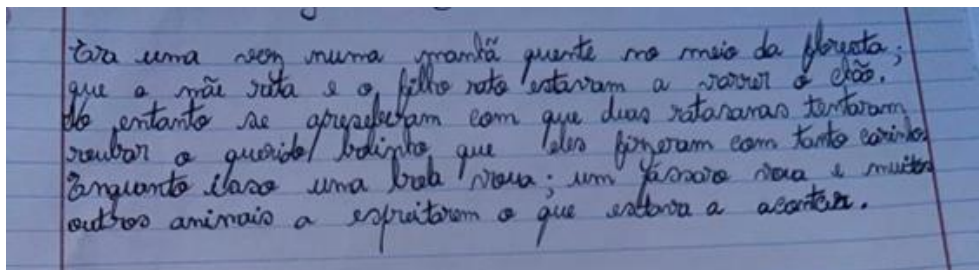 Era uma vez numa manhã quente no meio da floresta;
que a mãe rata e o filho rato estavam a varrer o chão.
No entanto se com que duas ratasanas tentaram
roubar o querido bolinho que eles fizeram com tanto carinho.
Enquanto uma voua; um pássaro voua e muitos
outros animais a espreitarem o que estava a